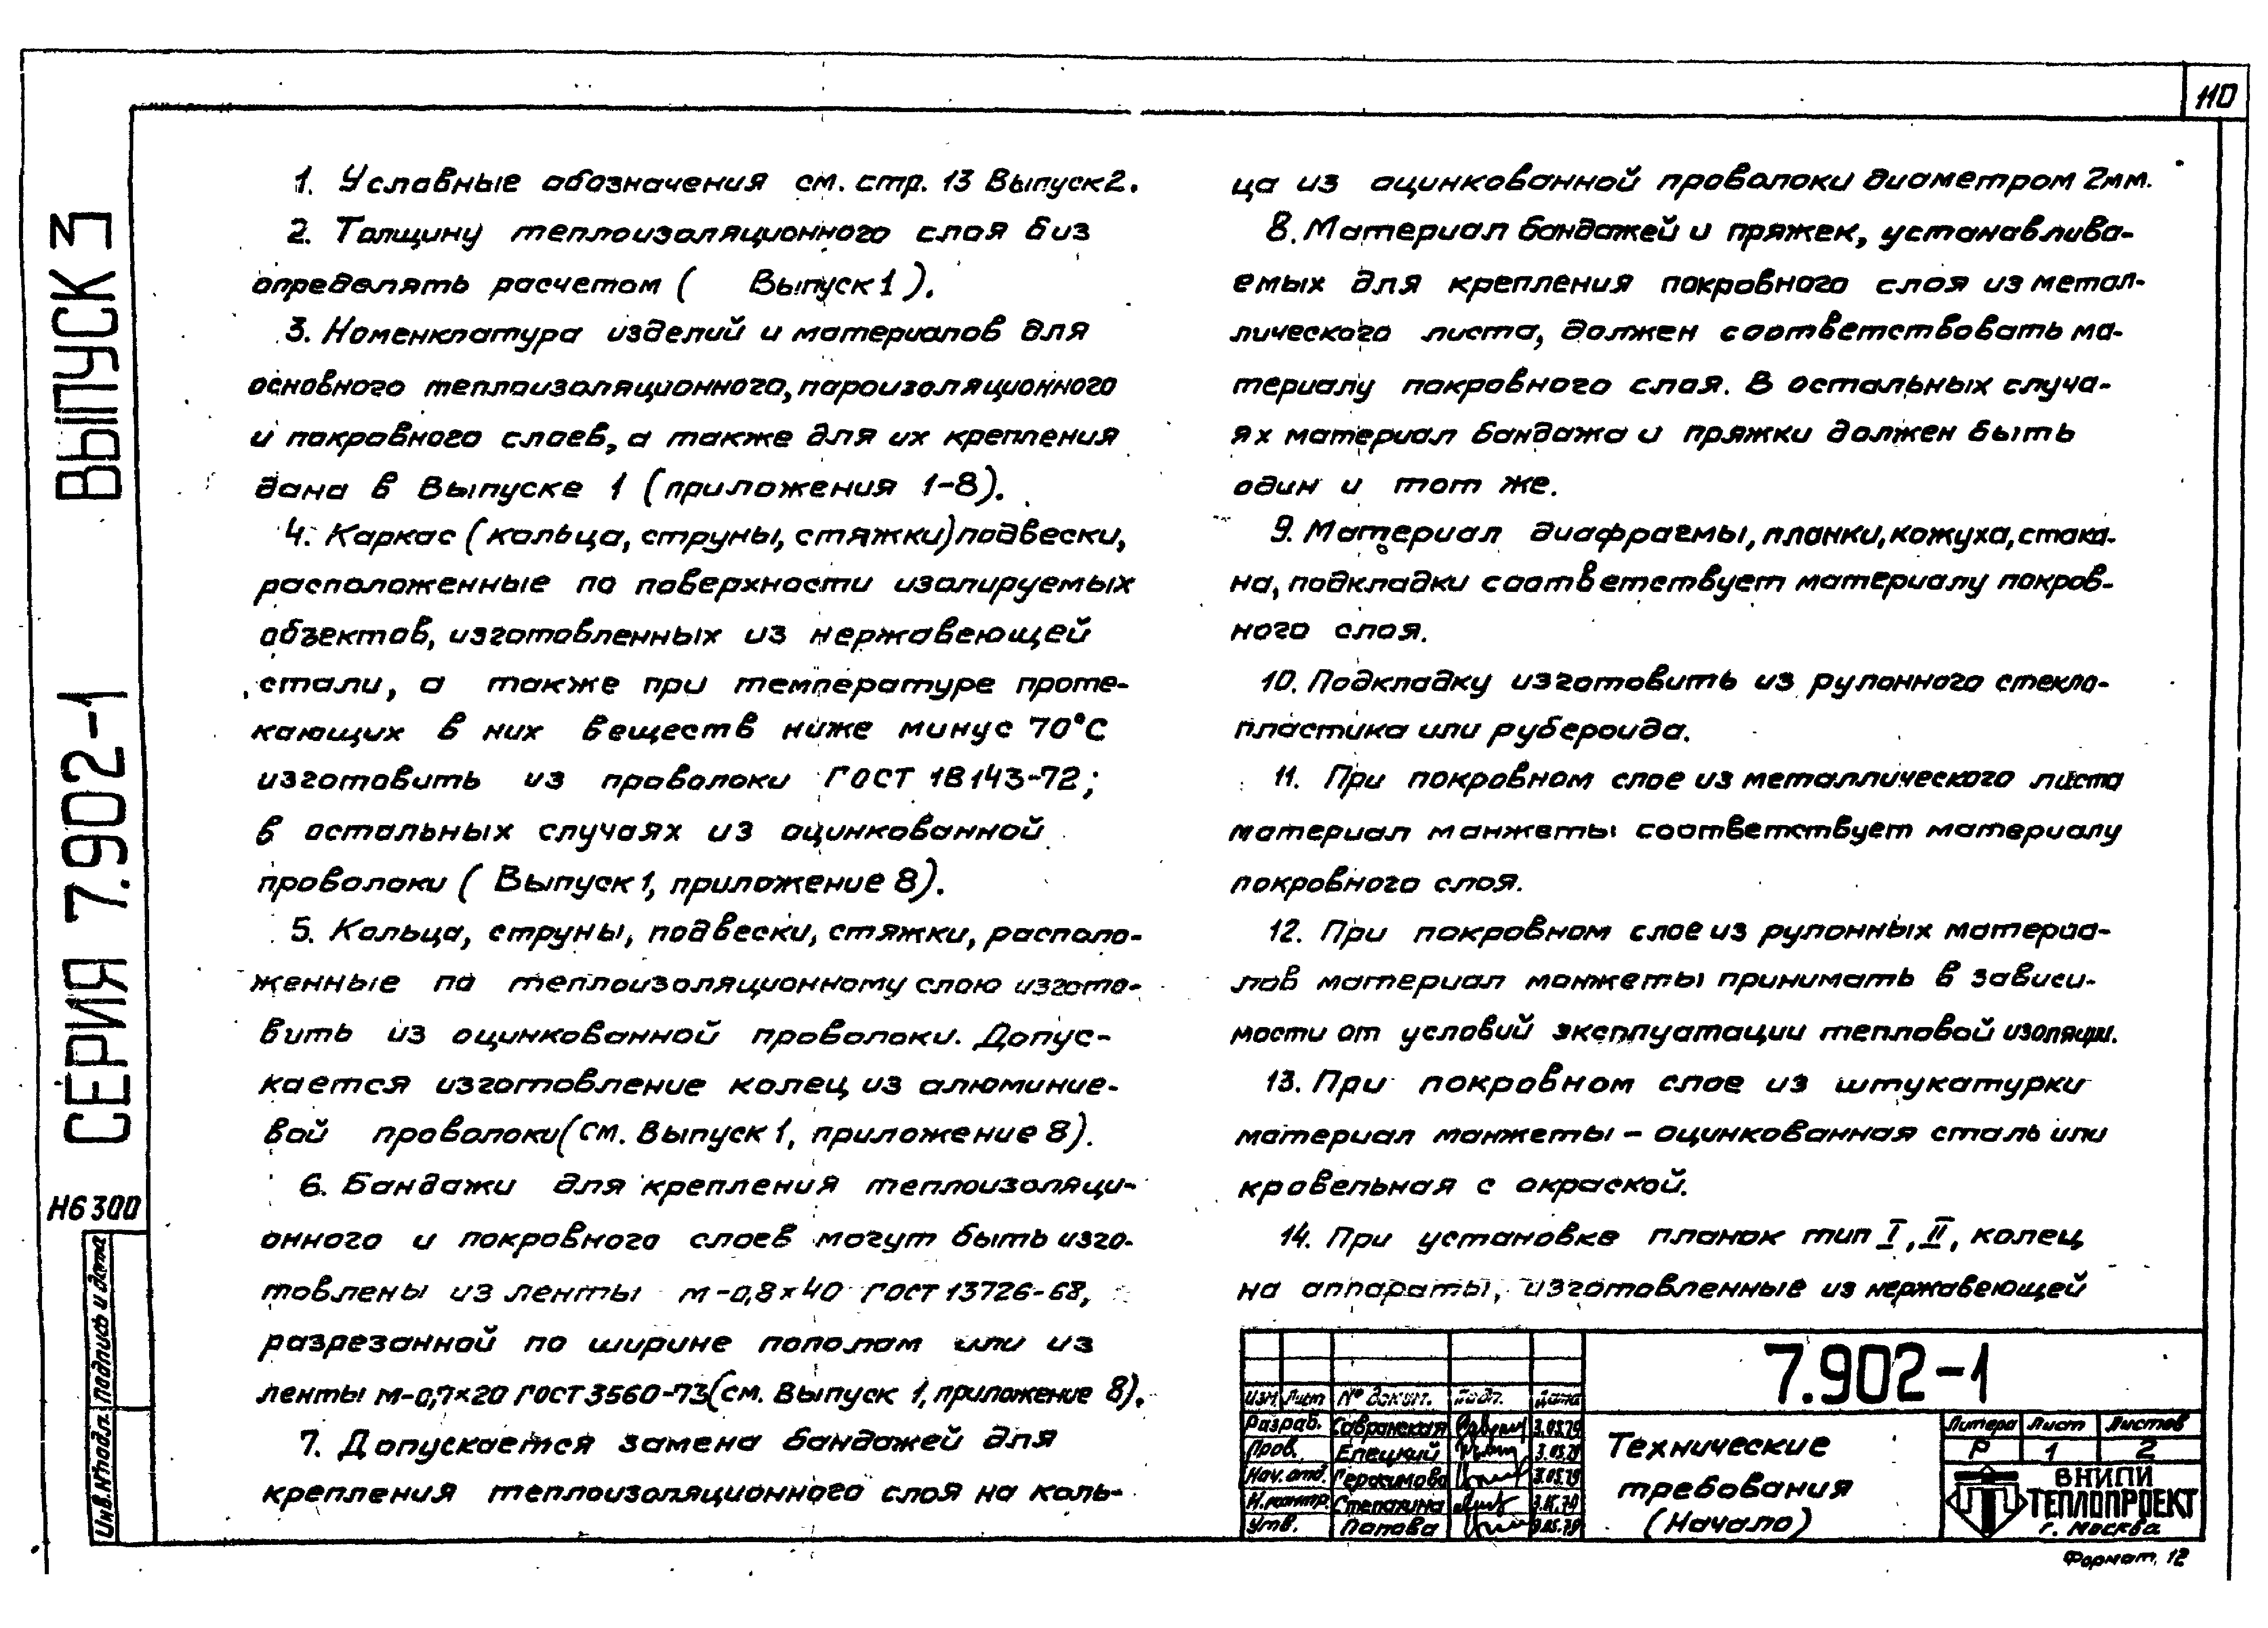 110
ВЫПУСК 3
СЕРИЯ 7.902-1
Н6 300
Подпись и дата
Инв.№подл.
1. Условные обозначения см. стр. 13 Выпуск 2.
2. Толщину теплоизоляционного слоя биз
определять расчетом ( Выпуск 1 ).
3. Номенклатура изделий и материалов для
основного теплоизоляционного, пароизоляционного
и покровного слоев, а также для их крепления
дана в Выпуске 1 (приложения 1-8).
4. Каркас (кольца, струны, стяжки) подвески,
расположенные по поверхности изолируемых
объектов, изготовленных из нержавеющей
стали, а также при температуре проте-
кающих в них веществ ниже минус 70°С
изготовить из проволоки ГОСТ 18143-72;
в остальных случаях из оцинкованной
проволоки ( Выпуск 1, приложение 8).
5. Кольца, струны, подвески, стяжки, располо-
женные по теплоизоляционному слою изгото-
вить из оцинкованной проволоки. Допус-
кается изготовление колец из алюминие-
вой проволоки (см. Выпуск 1, приложение 8).
6. Бандажи для крепления теплоизоляци-
онного и покровного слоев могут быть изго-
товлены из ленты м-0,8×40 ГОСТ 13726-68,
разрезанной по ширине пополам или из
ленты м-0,7×20 ГОСТ 3560-73(см. Выпуск 1, приложение 8).
7. Допускается замена бандажей для
крепления теплоизоляционного слоя на коль-
ца из оцинкованной проволоки диаметром 2мм.
8. Материал бандажей и пряжек, устанавлива-
емых для крепления покровного слоя из метал-
лического листа, должен соответствовать ма-
териалу покровного слоя. В остальных случа-
ях материал бандажа и пряжки должен быть
один и тот же.
9. Материал диафрагмы, планки, кожуха, стака-
на, подкладки соответствует материалу покров-
ного слоя.
10. Подкладку изготовить из рулонного стекло-
пластика или рубероида.
11. При покровном слое из металлического листа
материал манжеты соответствует материалу
покровного слоя.
12. При покровном слое из рулонных материа-
лов материал манжеты принимать в зависи-
мости от условий эксплуатации тепловой изоляции.
13. При покровном слое из штукатурки
материал манжеты – оцинкованная сталь или
кровельная с окраской.
14. При установке планок тип I, II, колец
на аппараты, изготовленные из нержавеющей
Изм. Лист № докум. Подп. Дата
Разраб. Савранская 3.05.79
Пров. Елецкий 3.05.79
Нач. отд. Герасимова 3.05.79
Н. контр. Степанина 3.05.79
Утв. Попова 3.05.79
7.902-1
Технические
требования
(Начало)
Литера Лист Листов
Р 1 2
ВНИПИ
ТЕПЛОПРОЕКТ
г. Москва
Формат 12